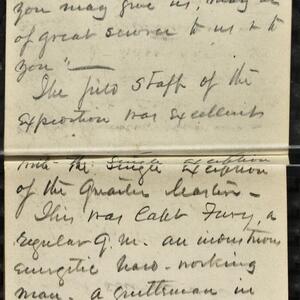 you may give us, may be
of great service to us & to
you"—
The field staff of the
Exposition was excellent
with the single exception
of the Quarter Master –
This was Cabt Furey, a
regular Q.M. an industrious
energetic hard-working
man, a gentleman in